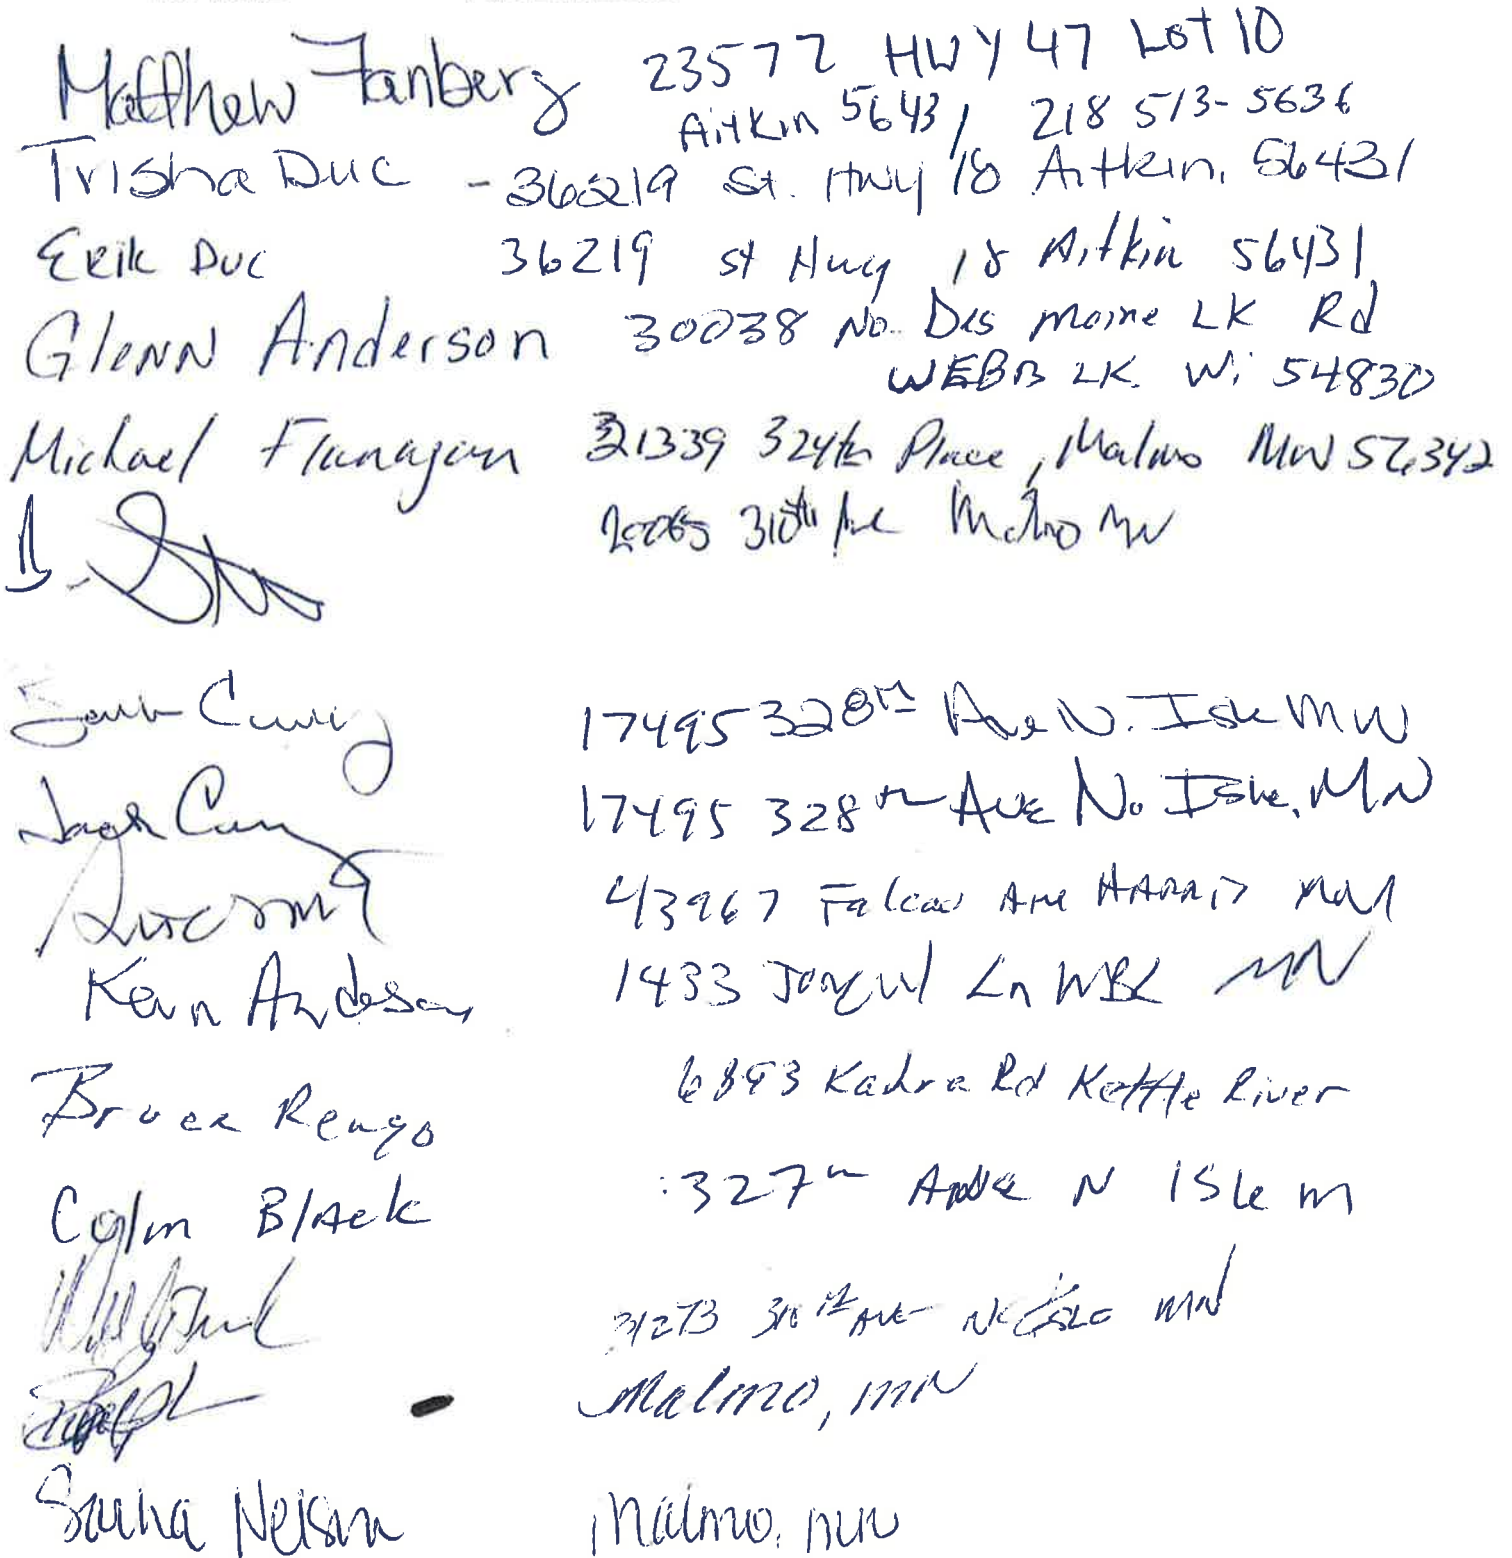 Matthew Fanberg 23577 HWY 47 Lot 10
Aitkin 56431 218 513-5636
Trisha Duc - 36219 St. Hwy 18 Aitkin, 56431
Erik Duc 36219 st Hwy 18 Aitkin 56431
Glenn Anderson 30038 No. Des Moine LK Rd
WEBB LK. Wi 54830
Michael Flanagan 21339 324th Place, Malmo MN 56342
310th Ave Malmo MN
17495 328th Ave N. Isle MN
17495 328th Ave No. Isle, MN
43967 Falcon Ave HARRIS MN
Kevin Anderson 1433 Jonquil Ln WBL MN
Bruce Rengo 6893 Kadra Rd Kettle River
Colin Black 327th N Isle m
310th Ave MN
Malmo, MN
Nelson Malmo, MN